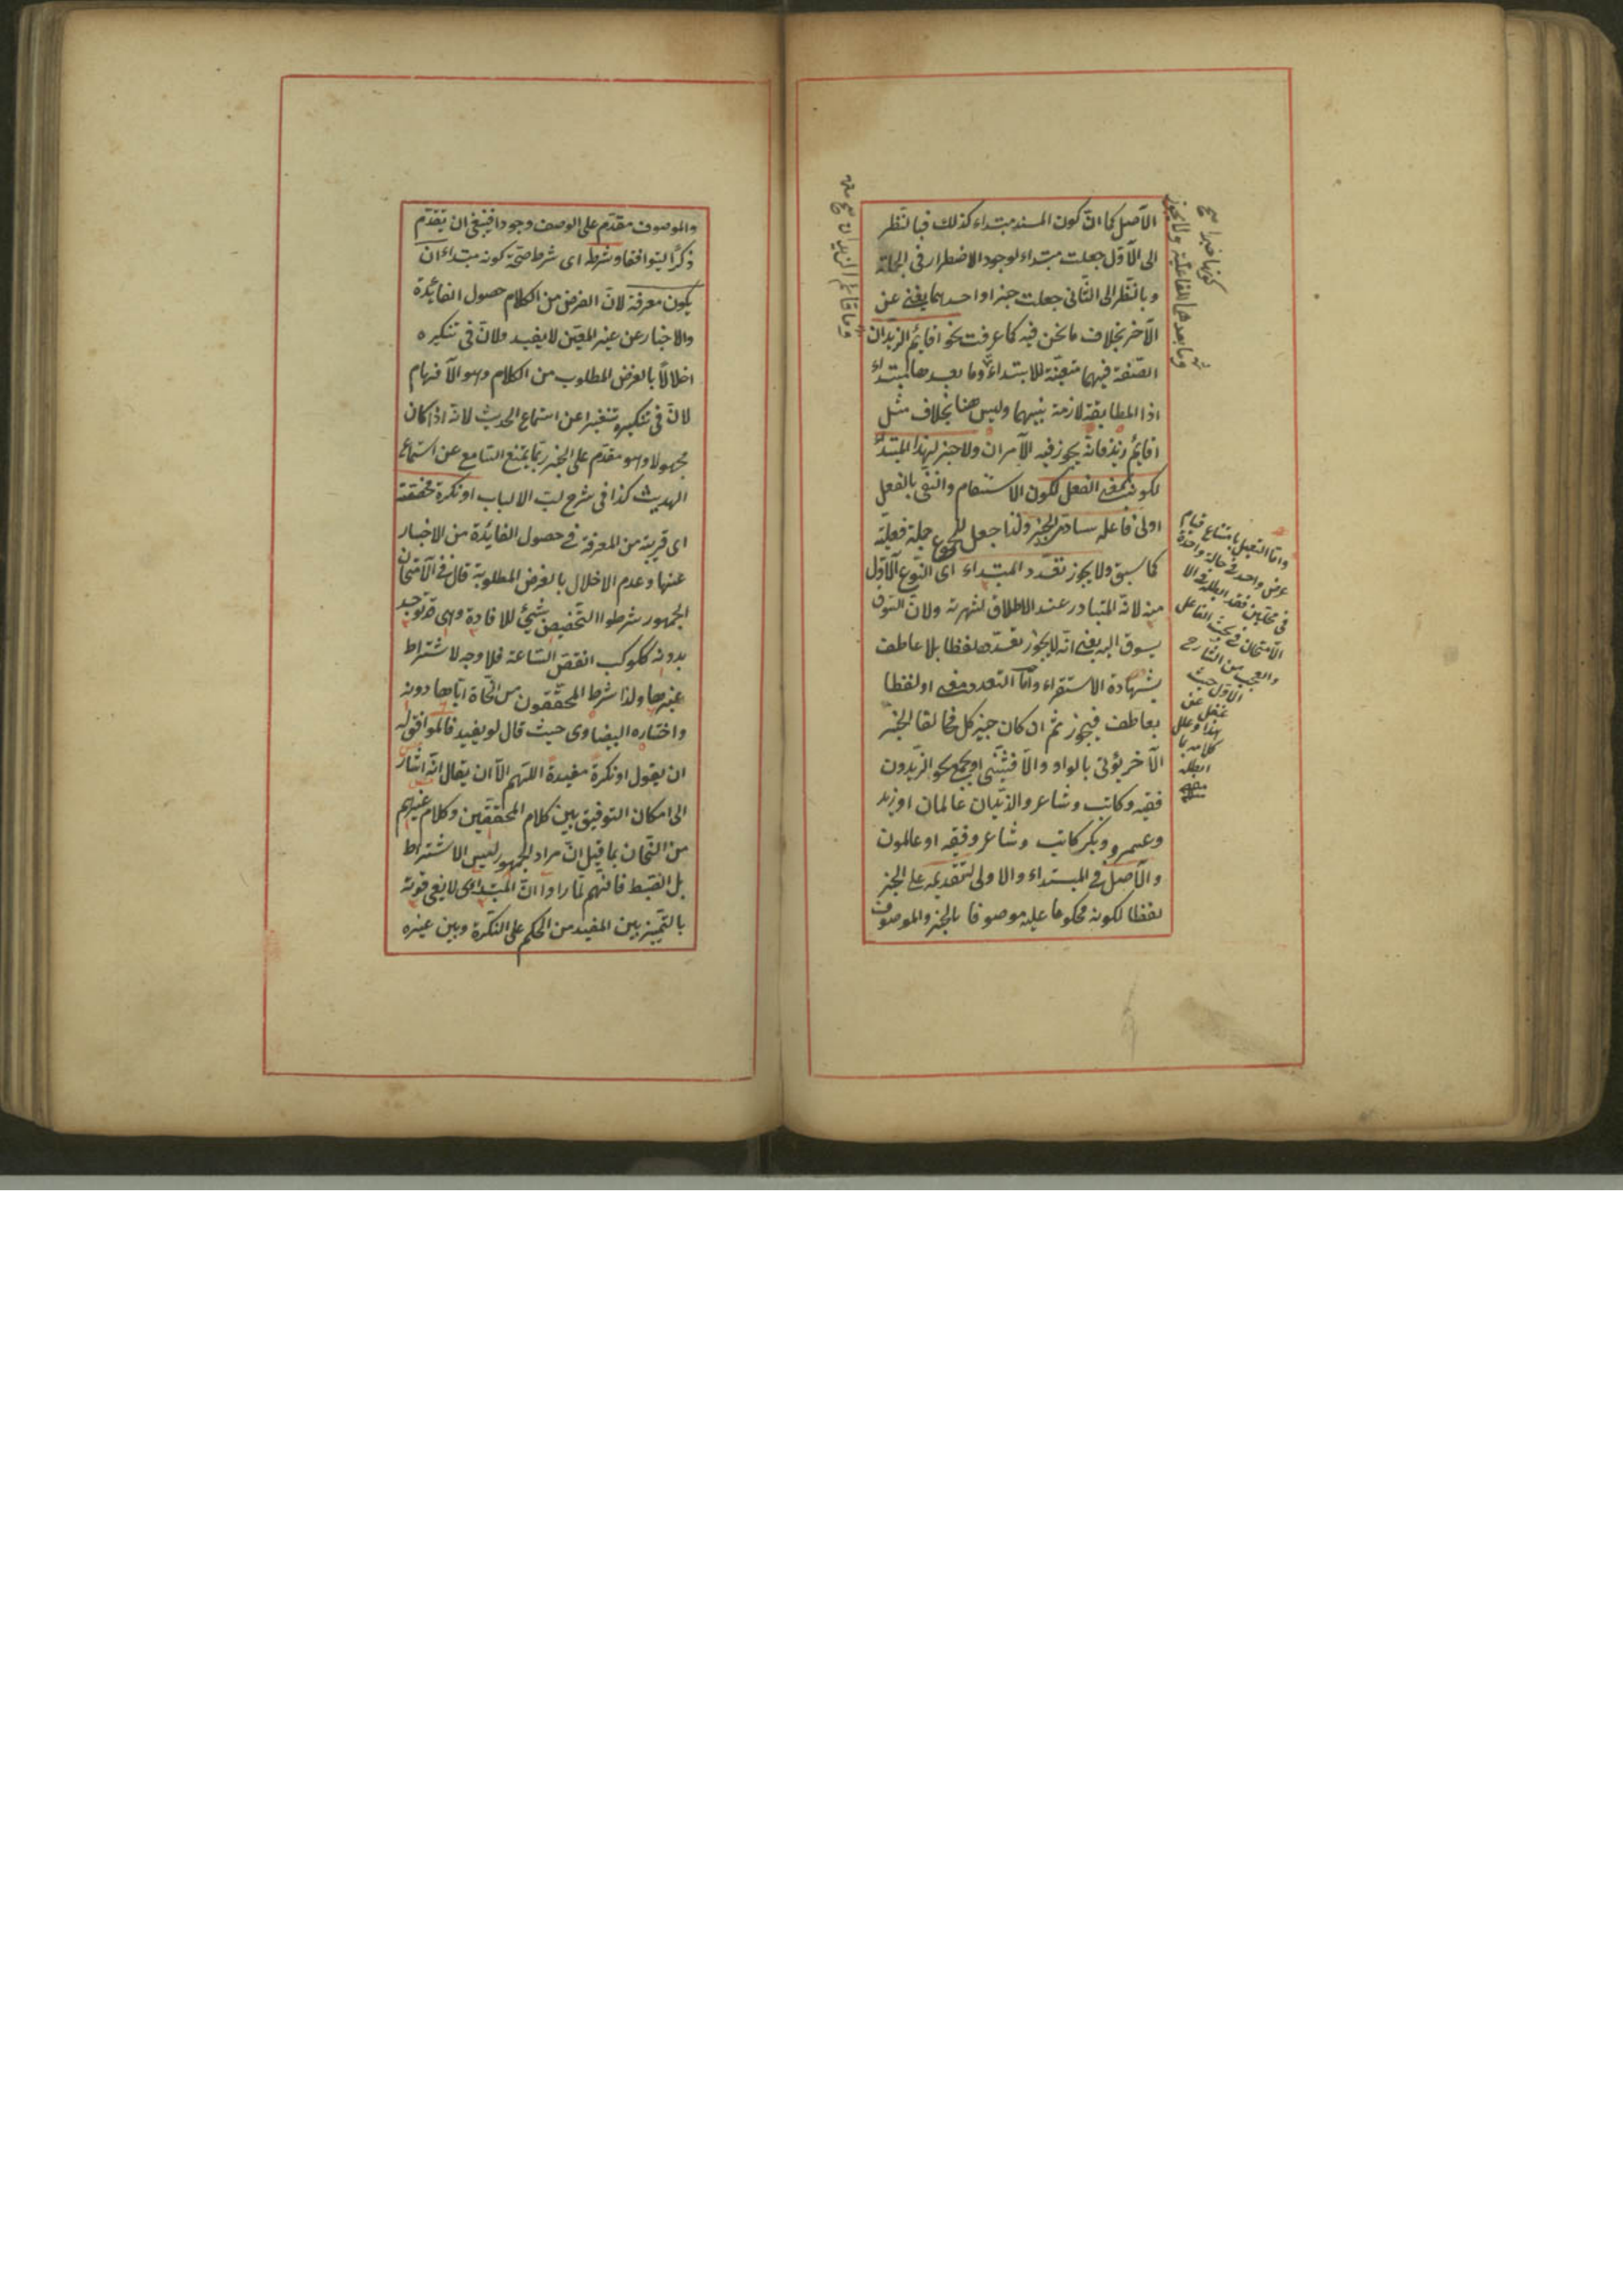 الأصل كما انّ كون المسند مبتداء كذلك فبالنّظر
الى الأوّل جعلت مبتداء لوجود الاضطرار فى الجملة
وبالنّظر الى الثّانى جعلت خبرا واحدهما يغنى عن
الآخر بخلاف ما نحن فيه كما عرفت نحو اقايم الزيدان
الصّفة فيهما متعيّنة للابتداء وما بعدها لمبتداء
اذا المطابقة لازمة بينهما وليس هنا بخلاف مثل
اقايم زيد فانّه يجوز فيه الأمران ولا خبر لهذا المبتدأ
لكونه بمعنى الفعل لكون الاستفهام والنّفى بالفعل
اولى فاعله سادّ مسدّ الخبر ولذا جعل المجموع جملة فعليّة
كما سبق ولا يجوز تعدّد المبتداء اى النّوع الأوّل
منه لانّه المتبادر عند الاطلاق لشهرته ولانّ السّوق
يسوق اليه يعنى انّه لا يجوز تعدّده لفظا بلا عاطف
بشهادة الاستقراء وامّا التعدد معنى او لفظا
بعاطف فيجوز ثم ان كان خبر كل مخالفا لخبر
الآخر يؤتى بالواو والّا فيثنّى او يجمع نحو الزيدون
فقيه وكاتب وشاعر والزيدان عالمان او زيد
وعمرو وبكر كاتب وشاعر وفقيه او عالمون
والأصل فى المبتداء والاولى لتقديمه على الخبر
لفظا لكونه محكوما عليه موصوفا بالخبر والموصوف
وامّا التعليل بامتناع قيام
عرض واحد فى حالة واحدة
فى محلين فقد ابطله فى الا
الامتحان فى بحث الفاعل
والعجب من الشارح
الاوّل حيث
غفل عن
هذا وعلل
كلامه بما
ابطله
وما بعدهما للفاعليّة ولا يجوز
كونها خبرا صح
وما قائم الزيدان صح
والموصوف مقدّم على الوصف وجودا فينبغى ان يتقدّم
ذكرًا ليتوافقا وشرط اى شرط صحّة كونه مبتداء ان
يكون معرفة لانّ الغرض من الكلام حصول الفائدة
والاخبار عن غير المعيّن لا يفيد ولانّ فى تنكيره
اخلالًا بالغرض المطلوب من الكلام وهو الأفهام
لانّ فى تنكيره تنفيرا عن استماع الحديث لانّه اذا كان
مجهولا وهو مقدّم على الخبر ربّما يمتنع السّامع عن استماع
الحديث كذا فى شرح لبّ الالباب او نكرة مخصّصة
اى قريبة من المعرفة فى حصول الفايدة من الاخبار
عنها وعدم الاخلال بالغرض المطلوب قال فى الأمتحان
الجمهور شرطوا التّخصيص بشيئ للافادة وهى قد توجد
بدونه ككوكب انقضّ السّاعة فلا وجه لاشتراط
غيرها ولذا شرط المحققون من النّحاة ايّاها دونه
واختاره البيضاوى حيث قال لو يفيد فالموافق له
ان يقول او نكرة مفيدة اللّهم الّا ان يقال انّه اشار
الى امكان التوفيق بين كلام المحققين وكلام غيرهم
من النّحاة بما قيل انّ مراد الجمهور ليس الاشتراط
بل الضبط فانّهم لمّا راوا انّ المبتدى لا يفى قوته
بالتمييز بين المفيد من الحكم على النّكرة وبين غيره